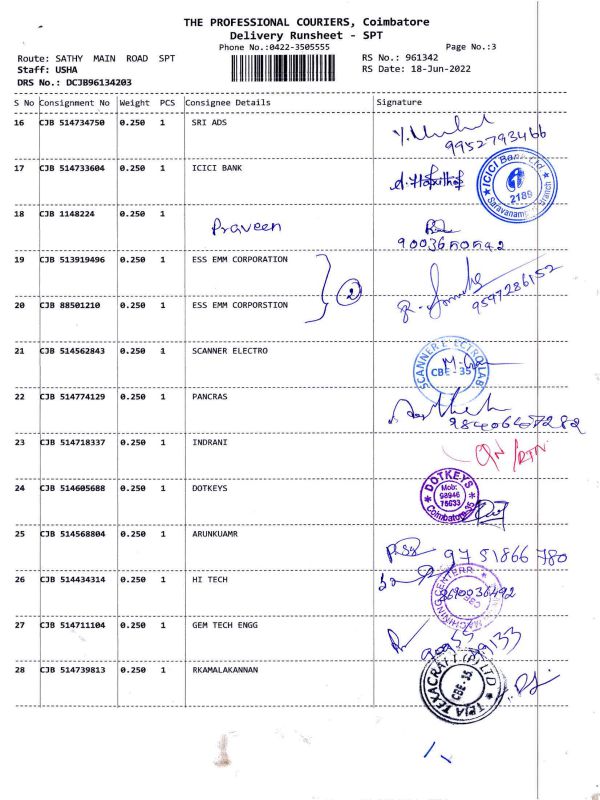 THE PROFESSIONAL COURIERS, Coimbatore
Delivery Runsheet - SPT
Phone No.:0422-3505555
Page No.:3
Route: SATHY MAIN ROAD SPT
RS No.: 961342
Staff: USHA
RS Date: 18-Jun-2022
DRS No.: DCJB96134203
S No Consignment No Weight PCS Consignee Details Signature
16 CJB 514734750 0.250 1 SRI ADS
9952793466
17 CJB 514733604 0.250 1 ICICI BANK
ICICI Bank Ltd
2186
Saravanampatti Branch
18 CJB 1148224 0.250 1
Praveen
9003650542
19 CJB 513919496 0.250 1 ESS EMM CORPORATION
2
9597286152
20 CJB 88501210 0.250 1 ESS EMM CORPORSTION
21 CJB 514562843 0.250 1 SCANNER ELECTRO
SCANNER ELECTRO LAB
CBE - 35
22 CJB 514774129 0.250 1 PANCRAS
23 CJB 514718337 0.250 1 INDRANI
/RTN
24 CJB 514605688 0.250 1 DOTKEYS
DOTKEYS
Mob:
98946
76633
Coimbatore-35
25 CJB 514568804 0.250 1 ARUNKUAMR
9751866780
26 CJB 514434314 0.250 1 HI TECH
27 CJB 514711104 0.250 1 GEM TECH ENGG
28 CJB 514739813 0.250 1 RKAMALAKANNAN
CBE-35